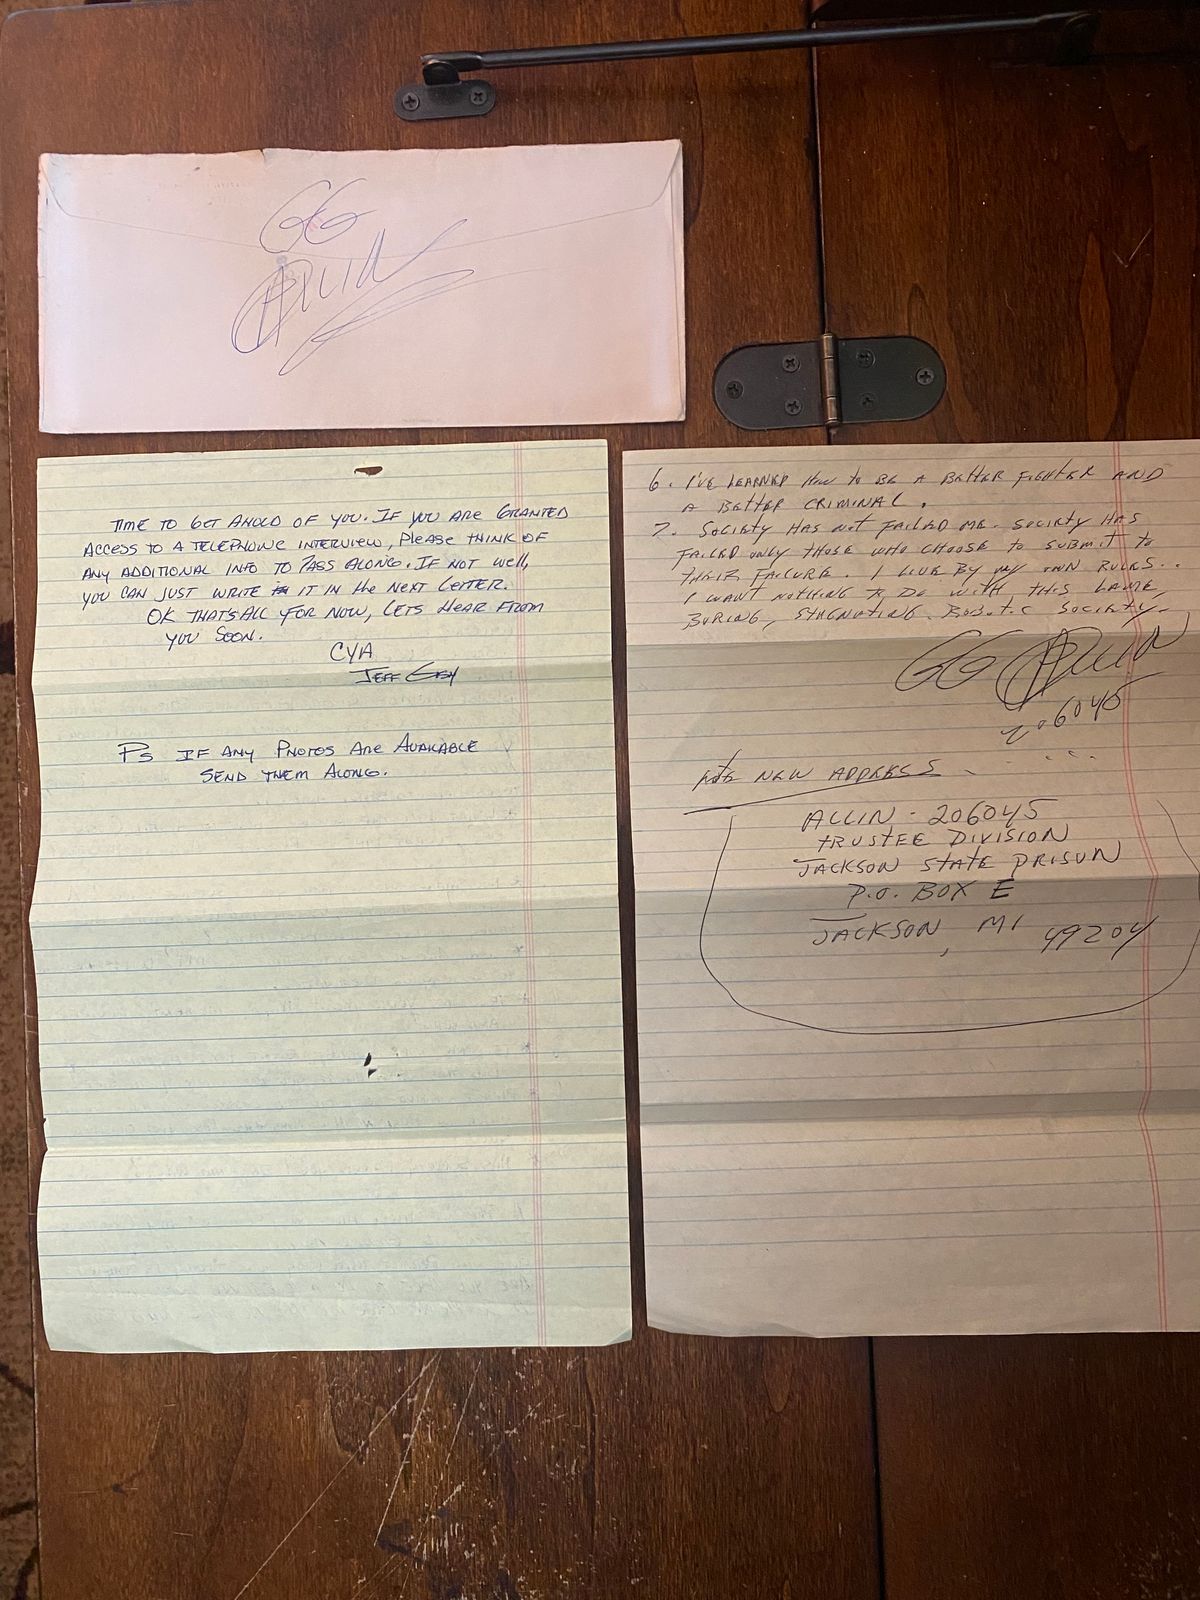 GG
Allin
TIME TO GET AHOLD OF YOU. IF YOU ARE GRANTED
ACCESS TO A TELEPHONE INTERVIEW, PLEASE THINK OF
ANY ADDITIONAL INFO TO PASS ALONG. IF NOT WELL,
YOU CAN JUST WRITE IT IN THE NEXT LETTER.
OK THATS ALL FOR NOW, LETS HEAR FROM
YOU SOON.
CYA
JEFF
PS IF ANY PHOTOS ARE AVAILABLE
SEND THEM ALONG.
6. I'VE LEARNED HOW TO BE A BETTER FIGHTER AND
A BETTER CRIMINAL.
7. SOCIETY HAS NOT FAILED ME. SOCIETY HAS
FAILED ONLY THOSE WHO CHOOSE TO SUBMIT TO
THEIR FAILURE. I LIVE BY MY OWN RULES..
I WANT NOTHING TO DO WITH THIS LAME,
BORING, STAGNATING ROBOTIC SOCIETY-
GG Allin
206045
NOTE NEW ADDRESS
ALLIN - 206045
TRUSTEE DIVISION
JACKSON STATE PRISON
P.O. BOX E
JACKSON, MI 49204